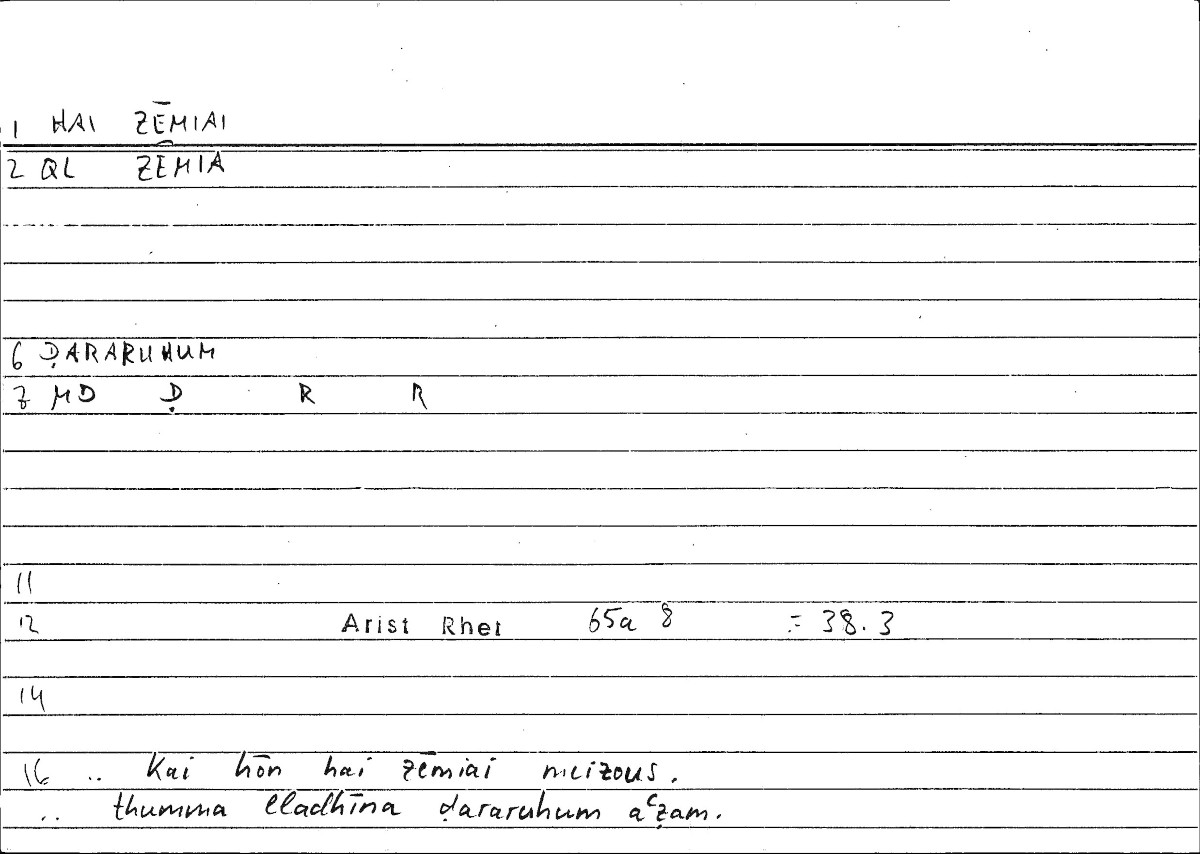 1 HAI ZĒMIAI
2 QL ZĒMIA
6 ḌARARUHUM
7 MD Ḍ R R
11
12 Arist Rhet 65a 8 = 38.3
14
16 .. kai hōn hai zēmiai meizous.
.. thumma lladhīna ḍararuhum aʿẓam.